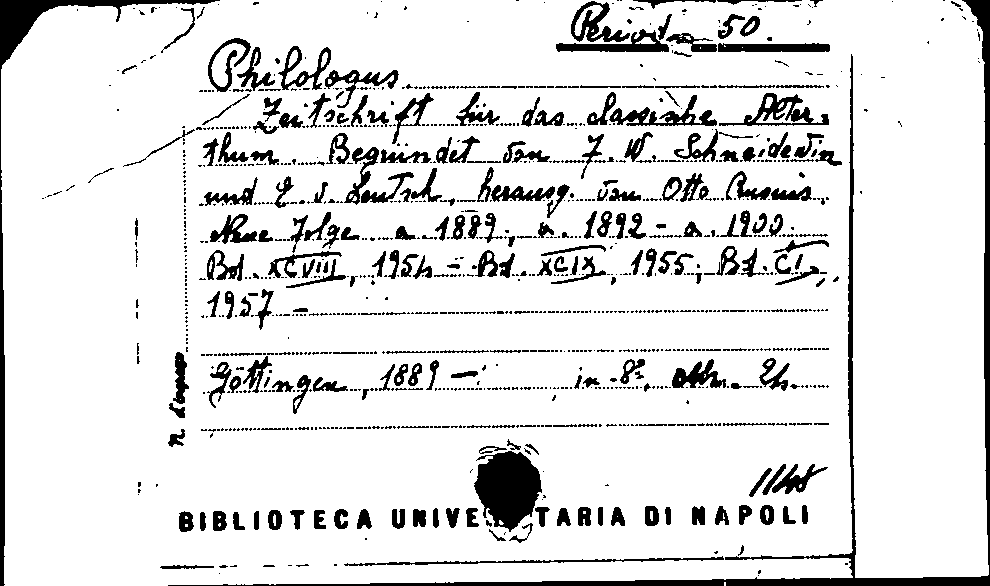 Period. 50.
Philologus.
Zeitschrift für das classische Alter=
thum. Begründet von F. W. Schneidewin
und E. v. Leutsch, herausg. von Otto Crusius.
Neue Folge a. 1889; a. 1892 - a. 1900.
Bd. XCVIII, 1954 - Bd. XCIX, 1955; Bd. CI,
1957 -
Göttingen, 1889 - in-8º.
N. d'ingresso
BIBLIOTECA UNIVERSITARIA DI NAPOLI